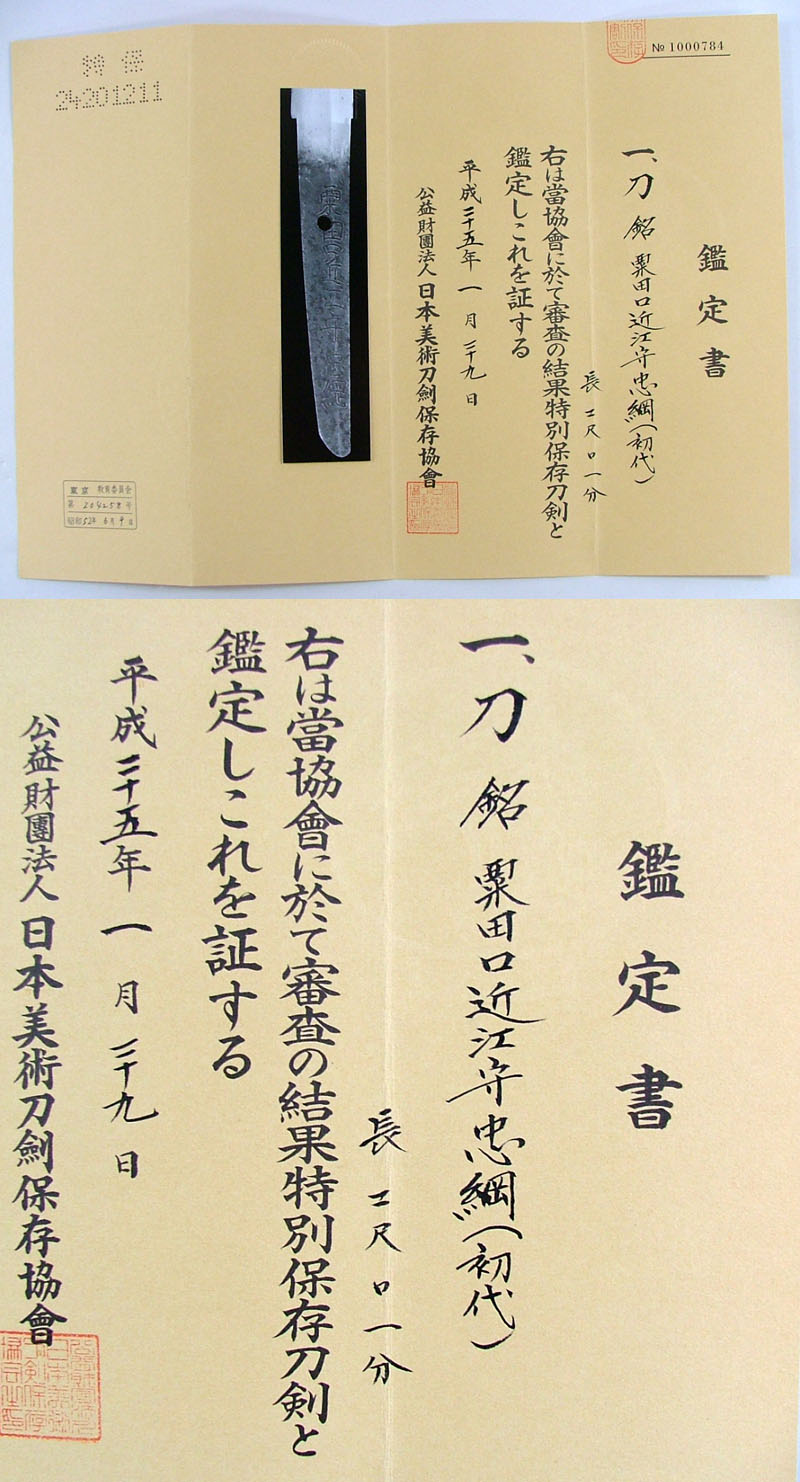 № 1000784
鑑定書
一、刀 銘 粟田口近江守忠綱(初代)
長 弐尺口一分
右は當協會に於て審査の結果特別保存刀剣と
鑑定しこれを証する
平成二十五年一月二十九日
公益財團法人 日本美術刀劍保存協會
特保
24201211
東京 教育委員会
第 204258 号
昭和52年6月9日
鑑定書
一、刀 銘 粟田口近江守忠綱(初代)
長 弐尺口一分
右は當協會に於て審査の結果特別保存刀剣と
鑑定しこれを証する
平成二十五年一月二十九日
公益財團法人 日本美術刀劍保存協會